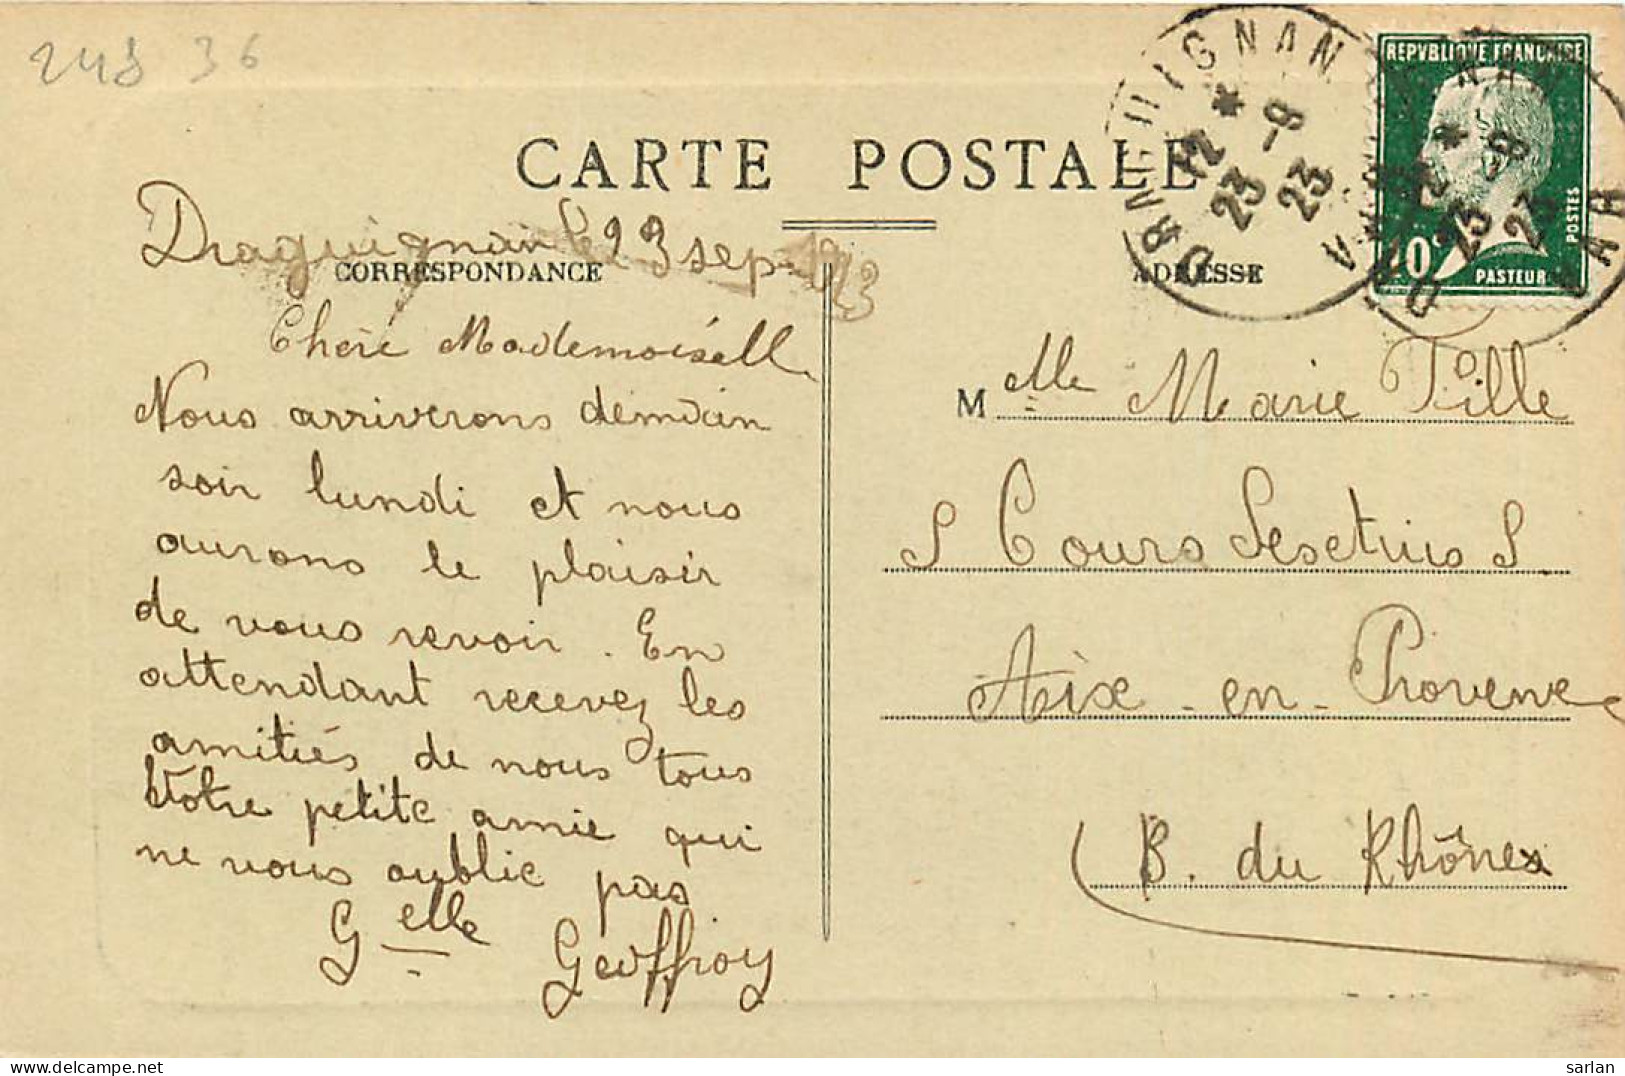 248 36
DRAGUIGNAN
12 *
23 -8
23
VAR
REPVBLIQUE FRANCAISE
POSTES
10c
PASTEUR
CARTE POSTALE
Draguignan le 23 sep 1923
CORRESPONDANCE
ADRESSE
Chère Mademoisell
Nous arriverons demain
soir lundi et nous
aurons le plaisir
de vous revoir. En
attendant recevez les
amitiés de nous tous
Votre petite amie qui
ne vous oublie pas
Gelle Geoffroy
M
elle Marie Pille
5 Cours Sesctius 5
Aix-en-Provence
B. du Rhônes
sarlan